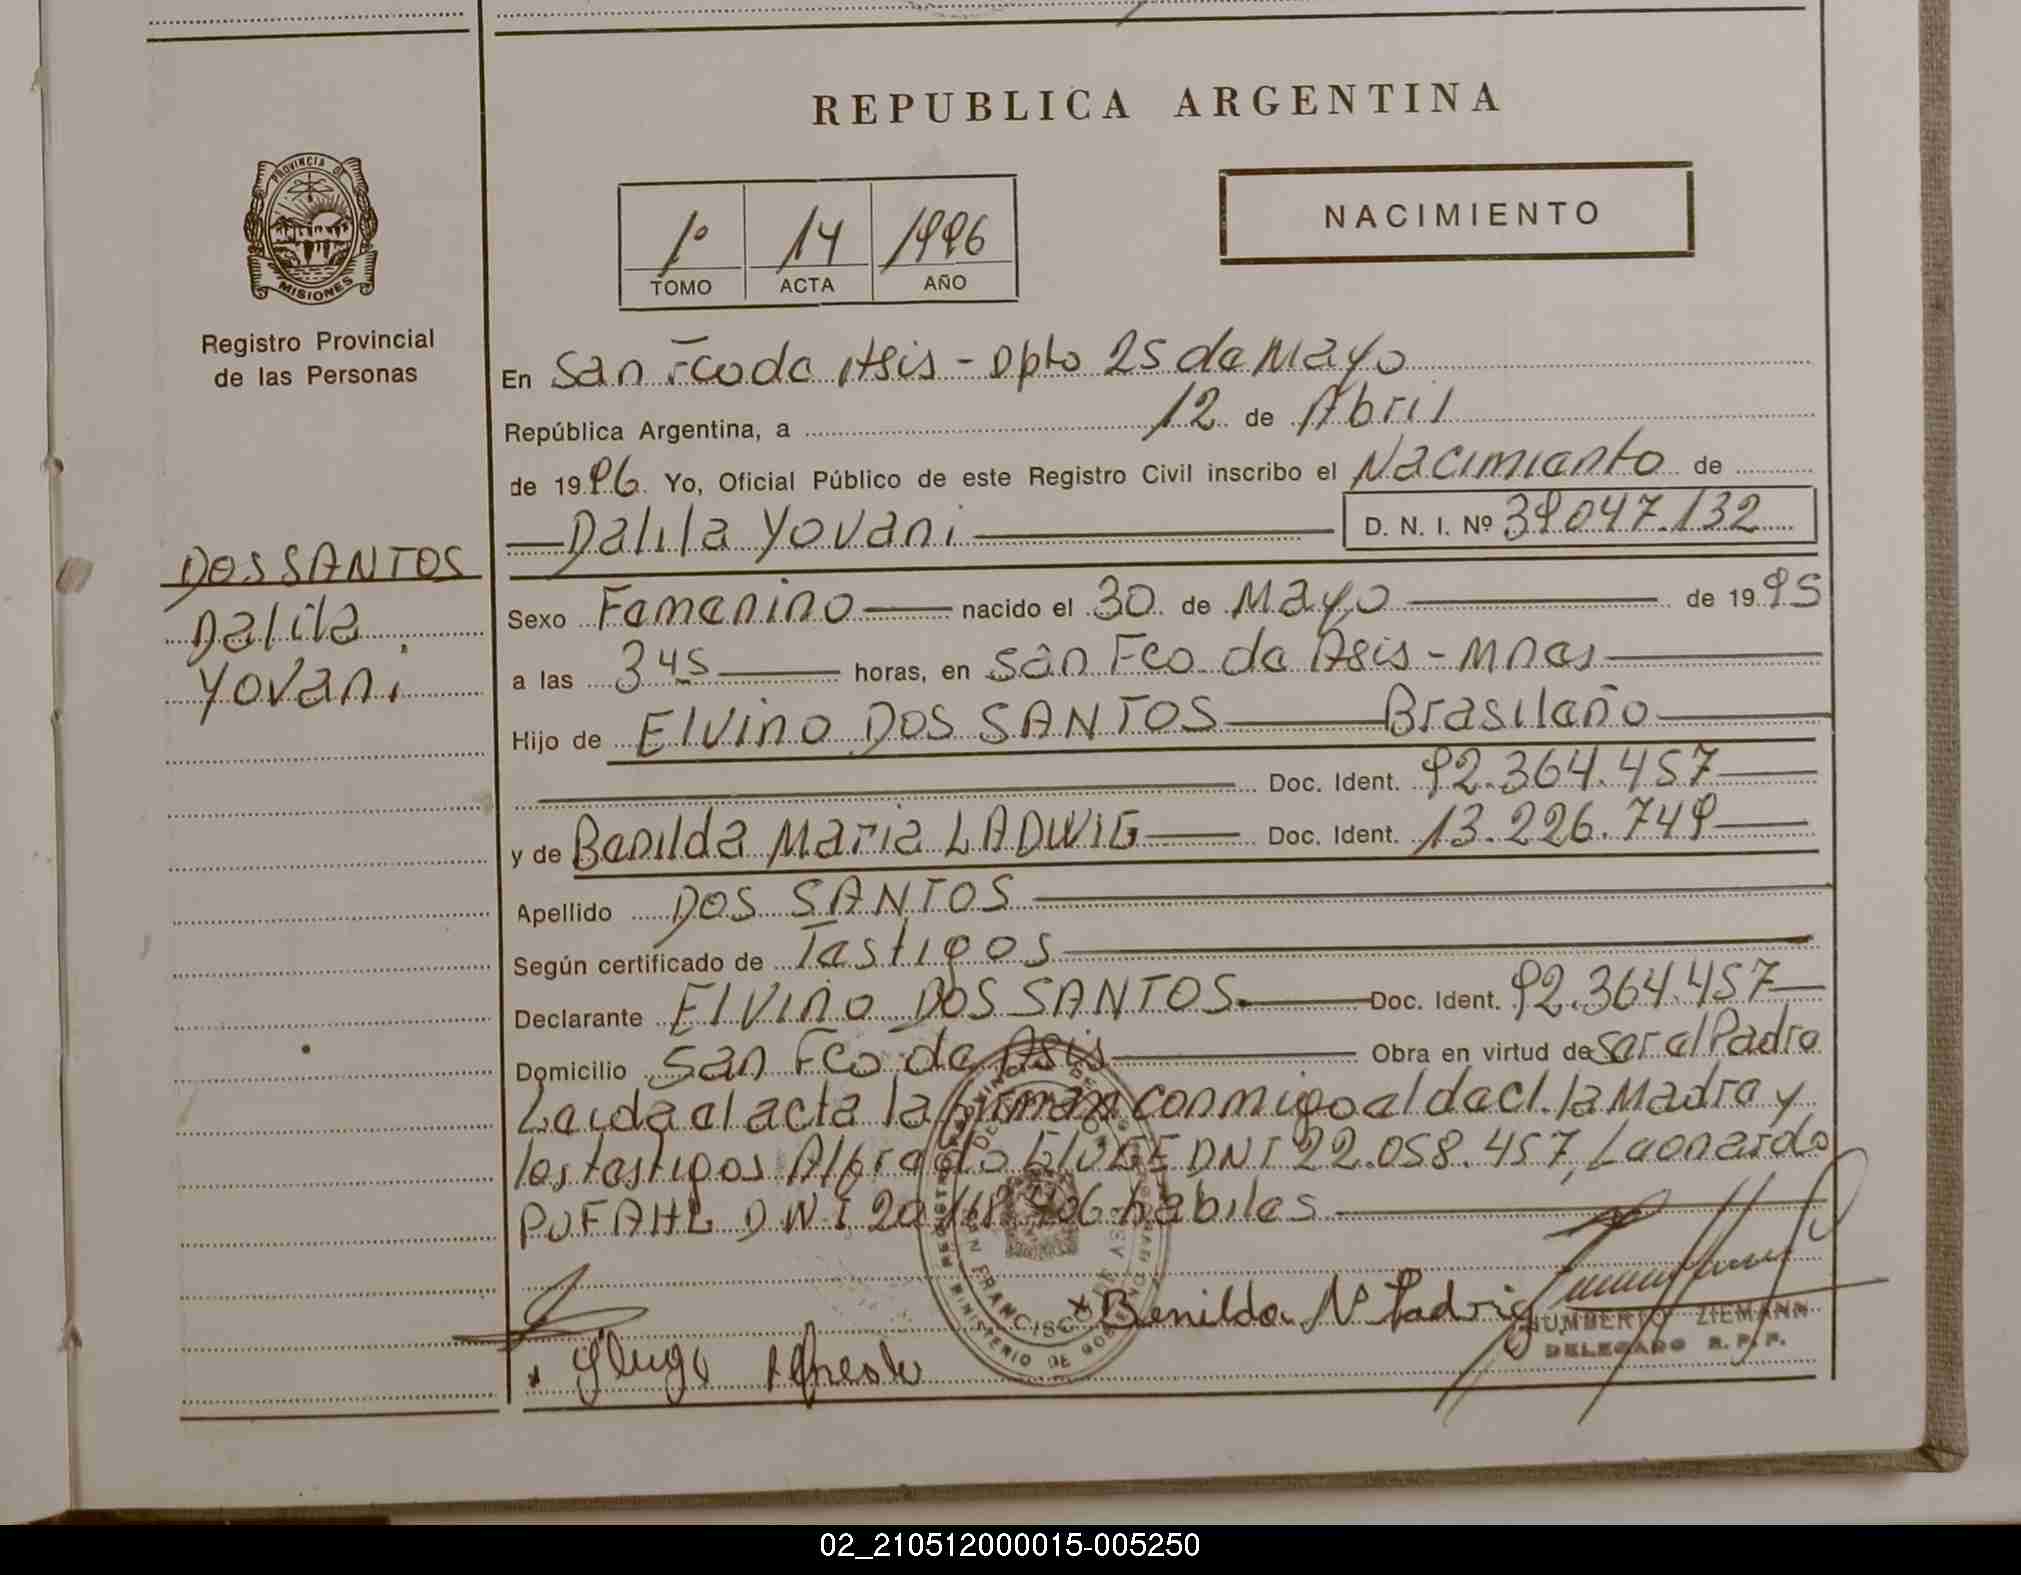 REPUBLICA ARGENTINA
PROVINCIA DE
MISIONES
Registro Provincial
de las Personas
NACIMIENTO
1º 14 1996
TOMO ACTA AÑO
En San Fco de Asis - Dpto 25 de Mayo
República Argentina, a 12 de Abril
de 1996. Yo, Oficial Público de este Registro Civil inscribo el Nacimiento de
Dalila Yovani D. N. I. Nº 39047.132
DOS SANTOS
Dalila
Yovani
Sexo Femenino nacido el 30 de Mayo de 1995
a las 3 45 horas, en San Fco de Asis - Mnes
Hijo de Elvino DOS SANTOS Brasileño
Doc. Ident. 92.364.457
y de Benilda Maria LADWIG Doc. Ident. 13.226.749
Apellido DOS SANTOS
Según certificado de Testigos
Declarante Elvino DOS SANTOS. Doc. Ident. 92.364.457
Domicilio San Fco de Asis Obra en virtud de ser el Padre
Leida el acta la firman conmigo el decl. la Madre y
los testigos Alfredo DNI 22.058.457, Leonardo
PUFAHL DNI habiles
Benilda Mª
HUMBERTO ZIEMANN
DELEGADO R. P. P.
02_210512000015-005250